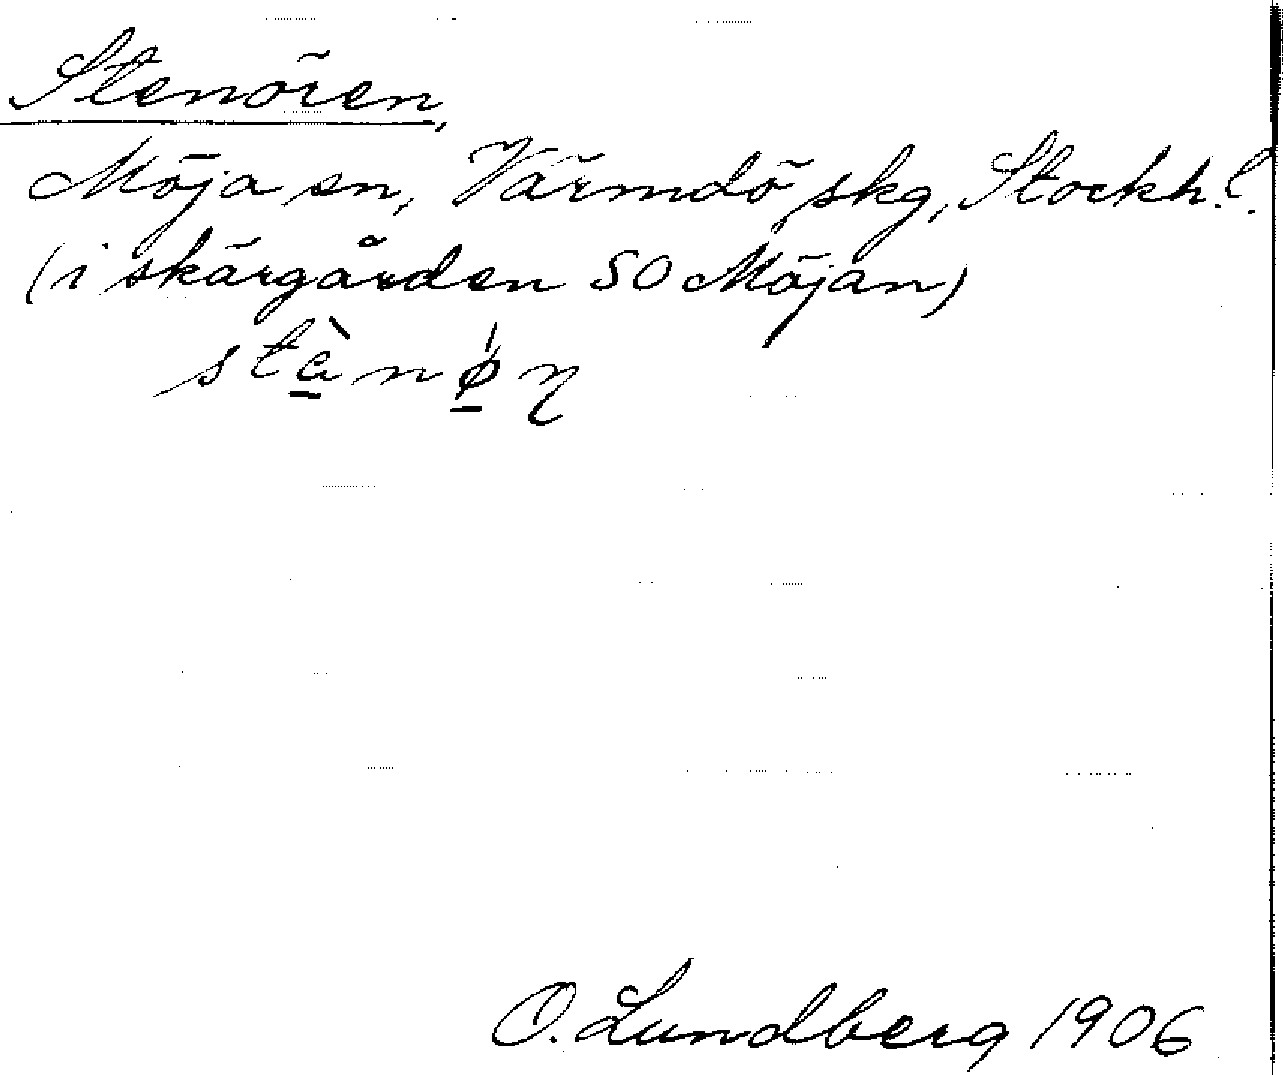 Stenören,
Möja sn, Värmdö skg, Stockh. l.
(i skärgården SO Möjan)
O. Lundberg 1906